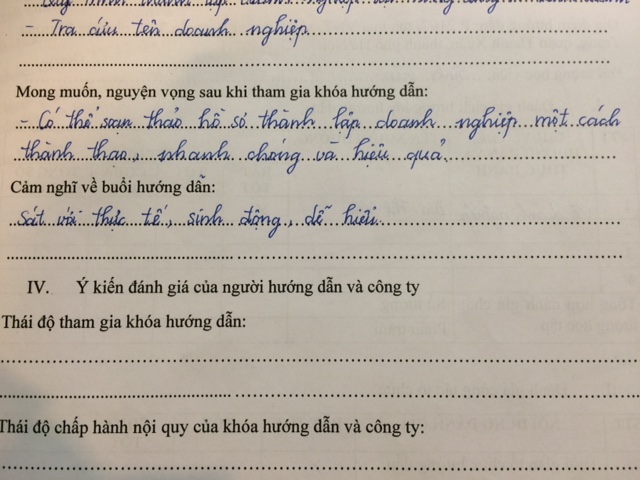 - Tra cứu tên doanh nghiệp
Mong muốn, nguyện vọng sau khi tham gia khóa hướng dẫn:
- Có thể soạn thảo hồ sơ thành lập doanh nghiệp một cách
thành thạo, nhanh chóng và hiệu quả.
Cảm nghĩ về buổi hướng dẫn:
Sát với thực tế, sinh động, dễ hiểu
IV. Ý kiến đánh giá của người hướng dẫn và công ty
Thái độ tham gia khóa hướng dẫn:
Thái độ chấp hành nội quy của khóa hướng dẫn và công ty: